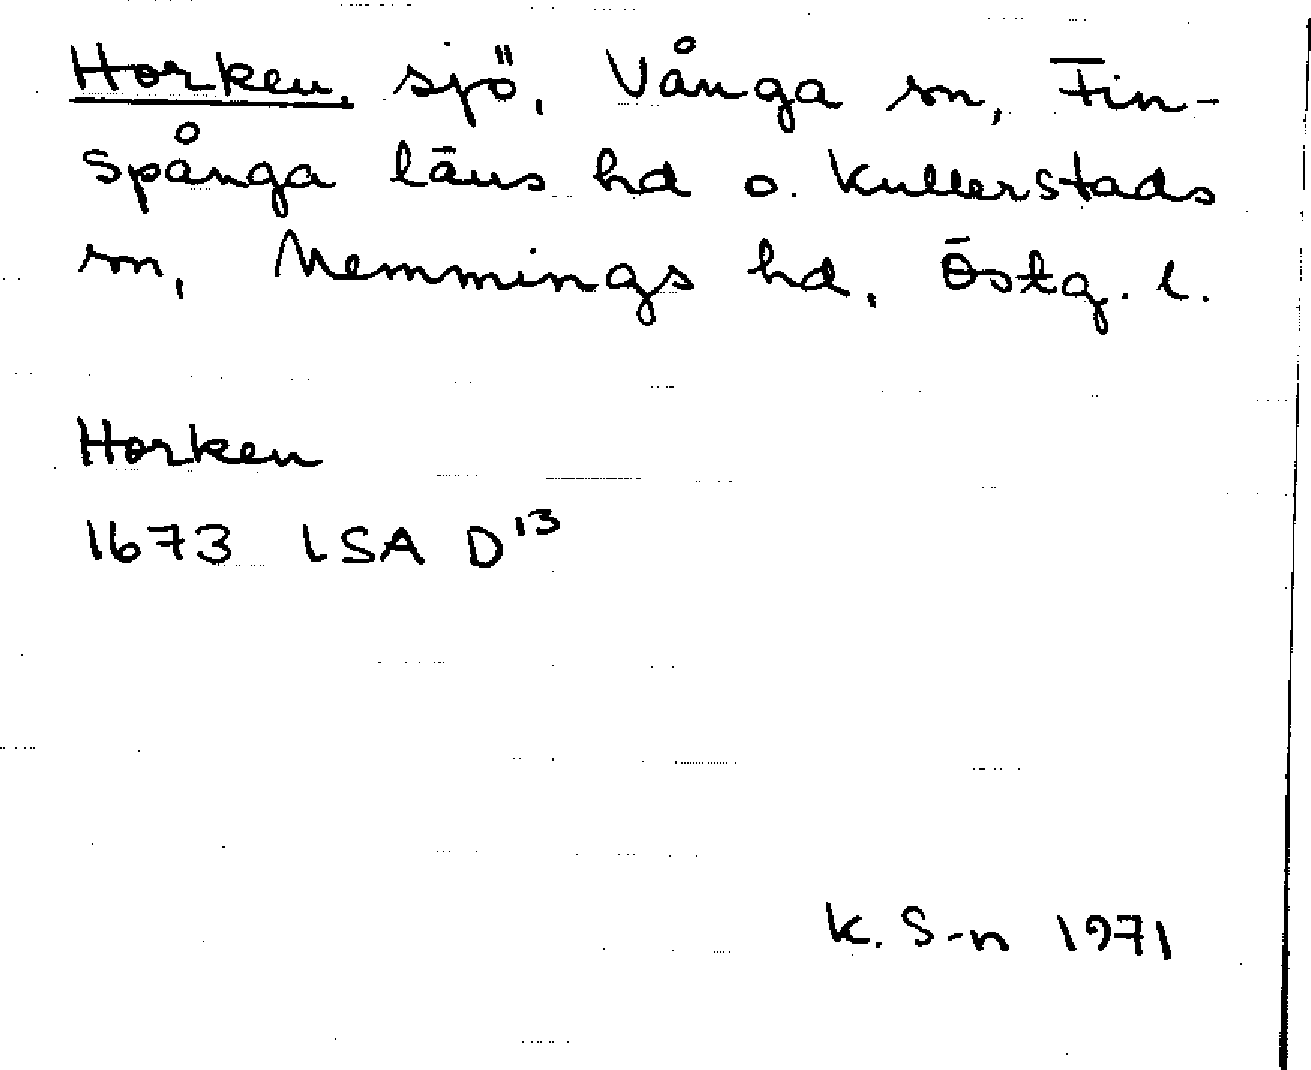 Horken, sjö, Vånga sn, Fin-
spånga läns hd o. Kullerstads
sn, Memmings hd, Östg. l.
Horken
1673 LSA D¹³
K. S-n 1971